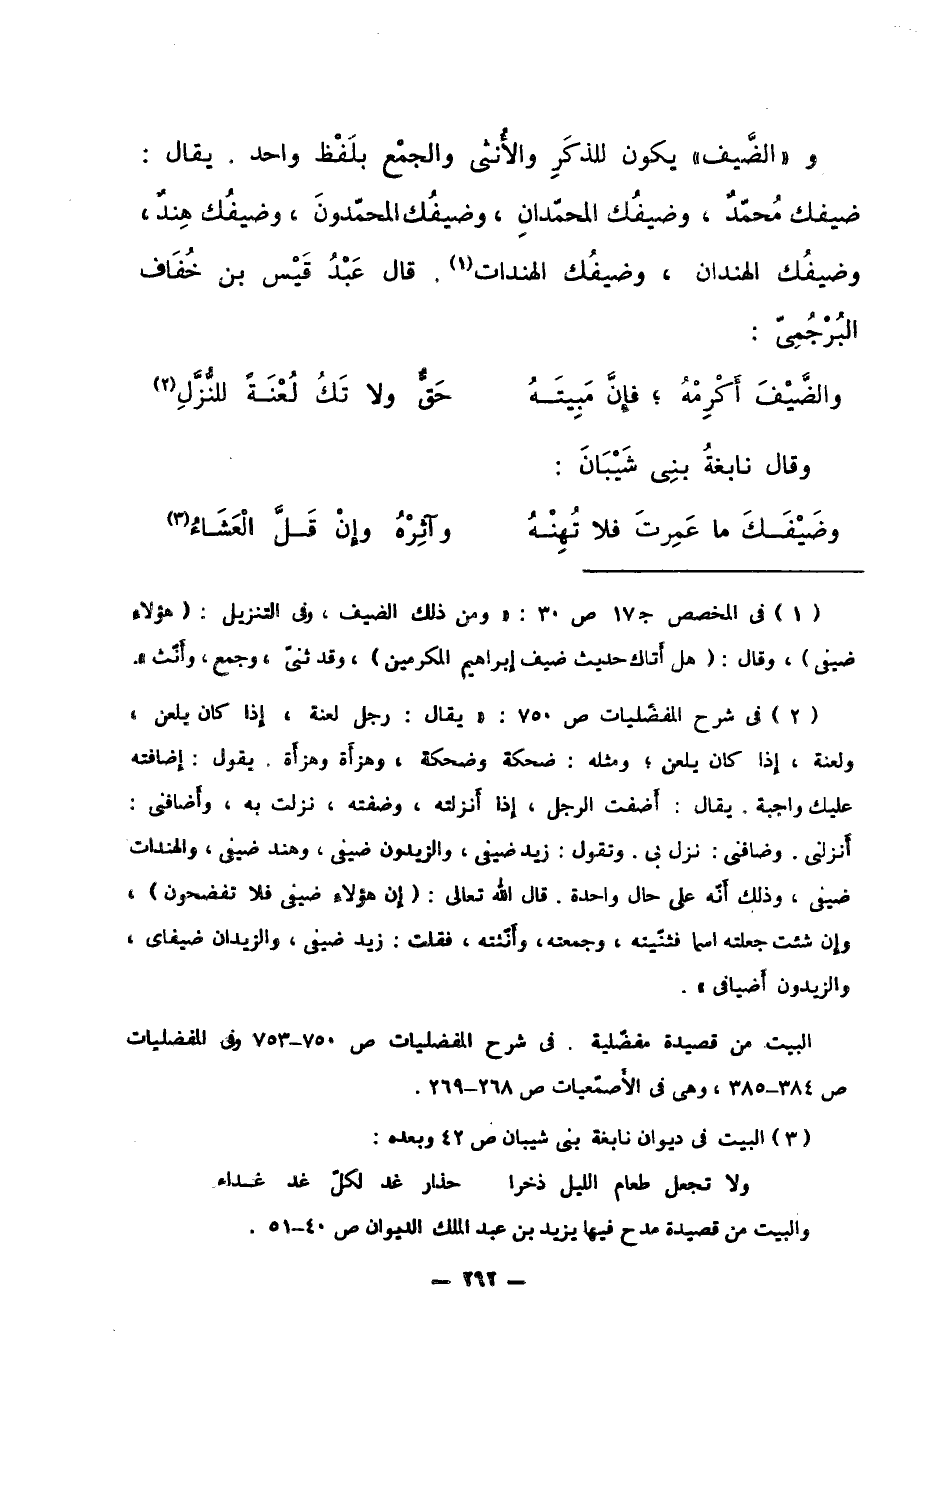 و «الضَّيف» يكون للذكَرِ والأُنثى والجمْع بلَفْظ واحد . يقال :
ضيفك مُحمّدٌ ، وضيفُك المحمّدانِ ، وضيفُك المحمّدونَ ، وضيفُك هِندٌ ،
وضيفُك الهندان ، وضيفُك الهندات(١) . قال عَبْدُ قَيْس بن خُفَاف
البُرْجُمِيّ :
والضَّيْفَ أَكْرِمْهُ ؛ فإِنَّ مَبِيتَـهُ حَقٌّ ولا تَكُ لُعْنَـةً للنُّزَّلِ(٢)
وقال نابغةُ بنِى شَيْبَانَ :
وضَيْفَـكَ ما عَمِرتَ فلا تُهِنْـهُ وآثِرْهُ وإنْ قَـلَّ الْعَشَاءُ(٣)
( ١ ) فى المخصص ج١٧ ص ٣٠ : « ومن ذلك الضيف ، وفى التنزيل : ( هؤلاء
ضيفى ) ، وقال : ( هل أتاك حديث ضيف إبراهيم المكرمين ) ، وقد ثنىّ ، وجمع ، وأنّث » .
( ٢ ) فى شرح المفضّليات ص ٧٥٠ : « يقال : رجل لعنة ، إذا كان يلعن ،
ولعنة ، إذا كان يلعن ؛ ومثله : ضحكة وضحكة ، وهزأة وهزأة . يقول : إضافته
عليك واجبة . يقال : أضفت الرجل ، إذا أنزلته ، وضفته ، نزلت به ، وأضافنى :
أنزلنى . وضافنى : نزل بى . وتقول : زيد ضيفى ، والزيدون ضيفى ، وهند ضيفى ، والهندات
ضيفى ، وذلك أنّه على حال واحدة . قال الله تعالى : ( إن هؤلاء ضيفى فلا تفضحون ) ،
وإن شئت جعلته اسما فثنّيته ، وجمعته، وأنّثته ، فقلت : زيد ضيفى ، والزيدان ضيفاى ،
والزيدون أضيافى » .
البيت من قصيدة مفضّلية . فى شرح المفضليات ص ٧٥٠–٧٥٣ وفى المفضليات
ص ٣٨٤–٣٨٥ ، وهى فى الأصمّعيات ص ٢٦٨–٢٦٩ .
( ٣ ) البيت فى ديوان نابغة بنى شيبان ص ٤٢ وبعده :
ولا تجعل طعام الليل ذخرا حذار غد لكلّ غد غـداء
والبيت من قصيدة مدح فيها يزيد بن عبد الملك الديوان ص ٤٠–٥١ .
– ٢٩٢ –